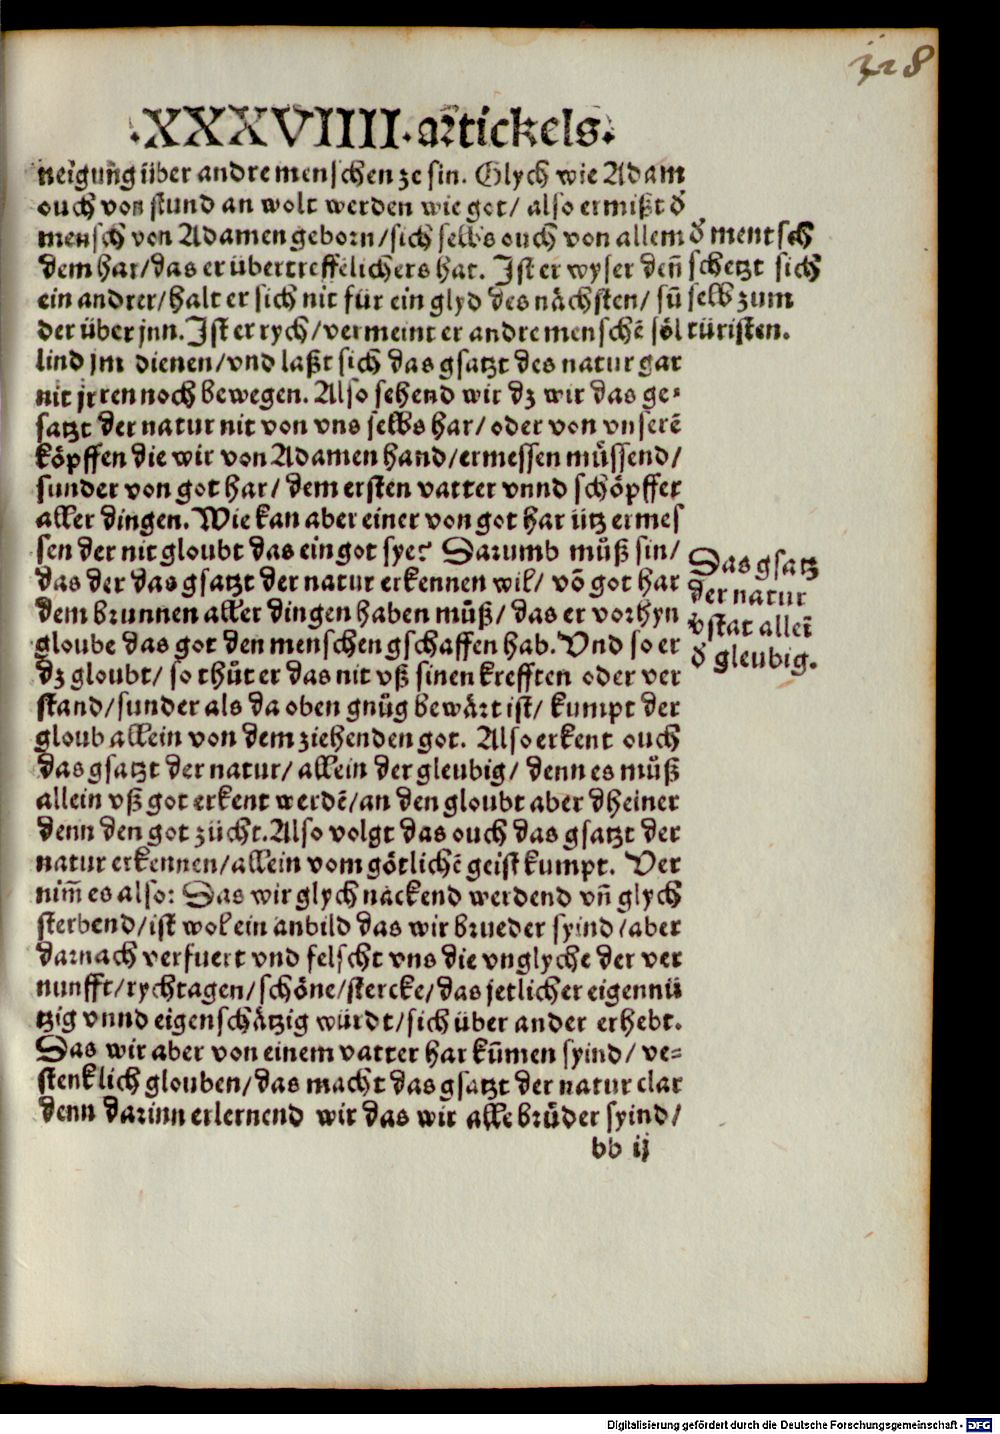 128
.XXXVIIII. artickels.
neigung über andre menschen ze sin. Glych wie Adam
ouch von stund an wolt werden wie got/ also ermißt d᷑
mensch von Adamen geborn/sich selbs ouch von allem
dem har/das er übertreffelichers hat. Ist er wyser deñ
ein andrer/halt er sich nit für ein glyd des nächsten/ sũ
der über jnn. Ist er rych/vermeint er andre menschẽ söl
lind jm dienen/vnd laßt sich das gsatzt des natur gar
nit jrren noch bewegen. Also sehend wir dz wir das ge⸗
satzt der natur nit von vns selbs har/ oder von vnserẽ
köpffen die wir von Adamen hand/ermessen müssend/
sunder von got har/ dem ersten vatter vnnd schöpffer
aller dingen. Wie kan aber einer von got har ütz ermes
sen der nit gloubt das ein got sye? Darumb můß sin/
das der das gsatzt der natur erkennen wil/ võ got har
dem brunnen aller dingen haben můß/ das er vorhyn
gloube das got den menschen gschaffen hab. Vnd so er
dz gloubt/ so thůt er das nit vß sinen krefften oder ver
stand/sunder als da oben gnůg bewärt ist/ kumpt der
gloub allein von dem ziehenden got. Also erkent ouch
das gsatzt der natur/ allein der gleubig/ denn es můß
allein vß got erkent werdẽ/an den gloubt aber dheiner
denn den got zücht. Also volgt das ouch das gsatzt der
natur erkennen/allein vom götlichẽ geist kumpt. Ver
nim̃ es also: Das wir glych nackend werdend vñ glych
sterbend/ist wol ein anbild das wir brueder syind/aber
darnach verfuert vnd felscht vns die vnglyche der ver
nunfft/rychtagen/schöne/stercke/das jetlicher eigennü
tzig vnnd eigenschätzig würdt/sich über ander erhebt.
Das wir aber von einem vatter har kũmen syind/ ve⸗
stenklich glouben/das macht das gsatzt der natur clar
denn darinn erlernend wir das wir alle brůder syind/
bb ij
d᷑ mentsch
schetzt sich
selb zum
türisten.
Das gsatz
der natur
v̓stat alleĩ
d᷑ gleubig.
Digitalisierung gefördert durch die Deutsche Forschungsgemeinschaft - DFG